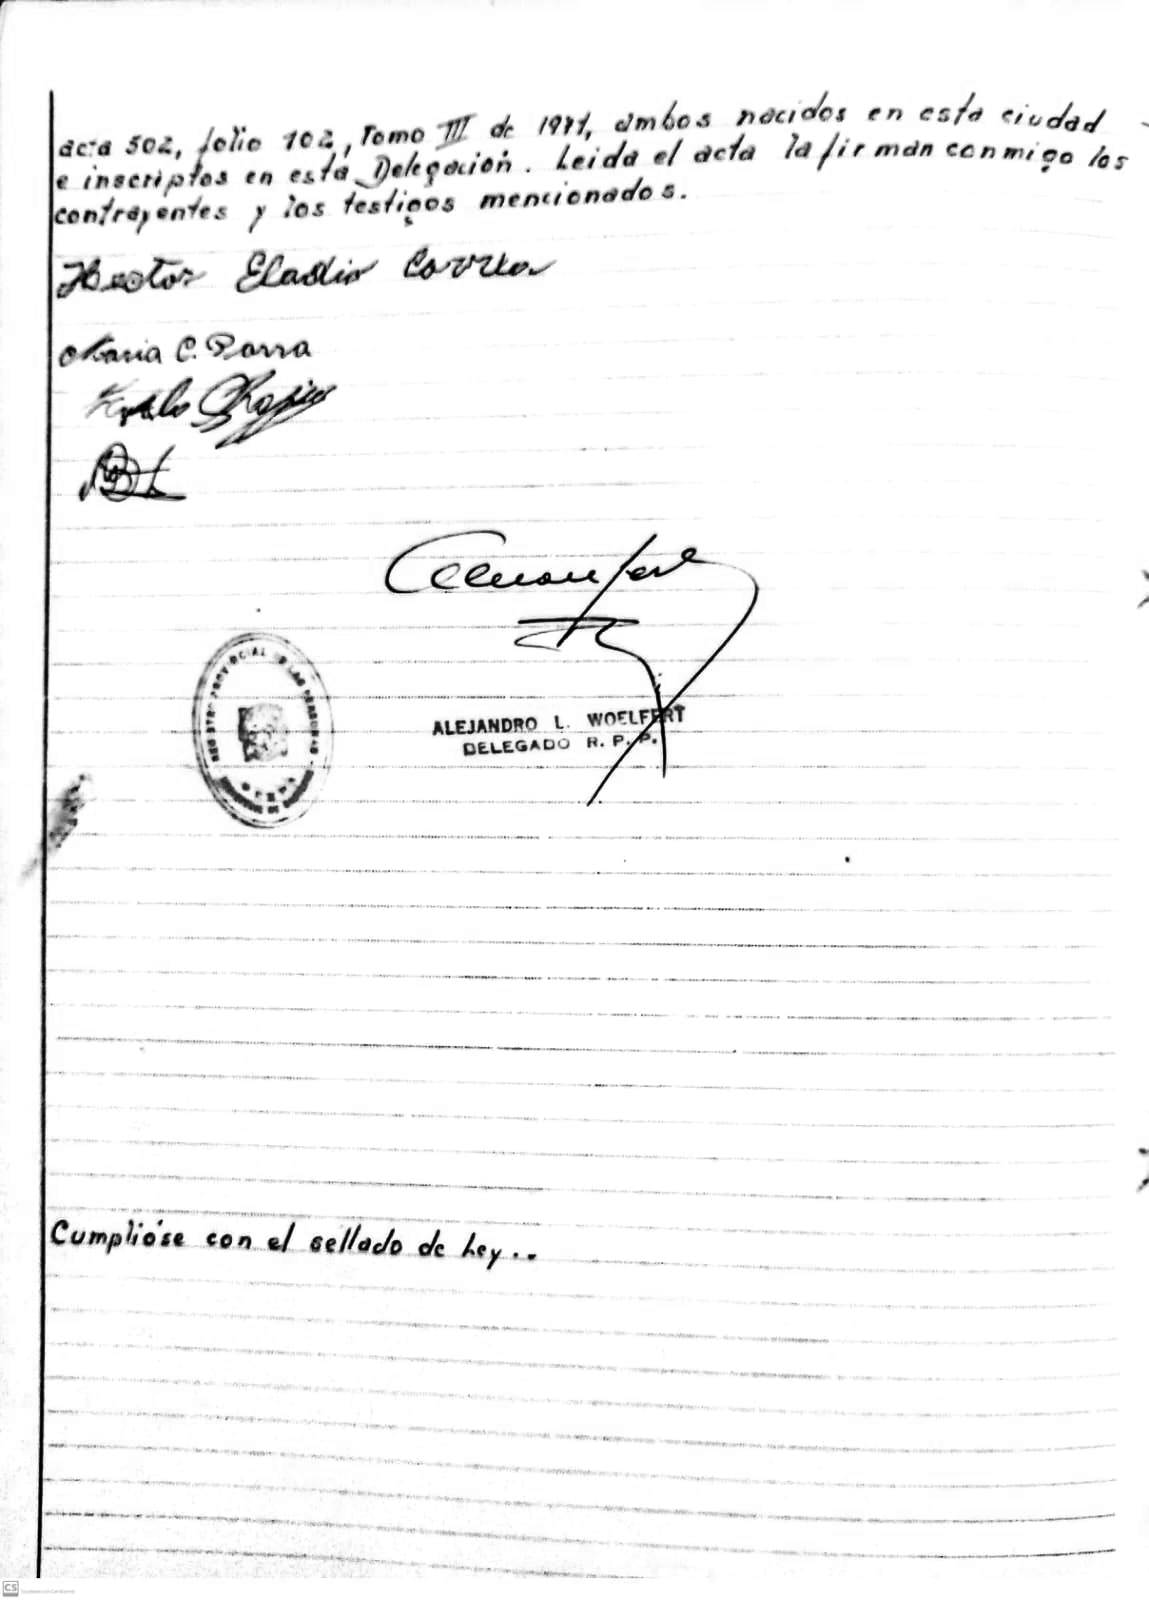 acta 502, folio 102, Tomo III de 1971, ambos nacidos en esta ciudad
e inscriptos en esta Delegación. Leida el acta la firman conmigo los
contrayentes y los testigos mencionados.
Hector Eladio Correa
Maria C. Parra
ALEJANDRO L. WOELFERT
DELEGADO R. P. P.
REGISTRO PROVINCIAL DE LAS PERSONAS
Cumplióse con el sellado de Ley..
CS